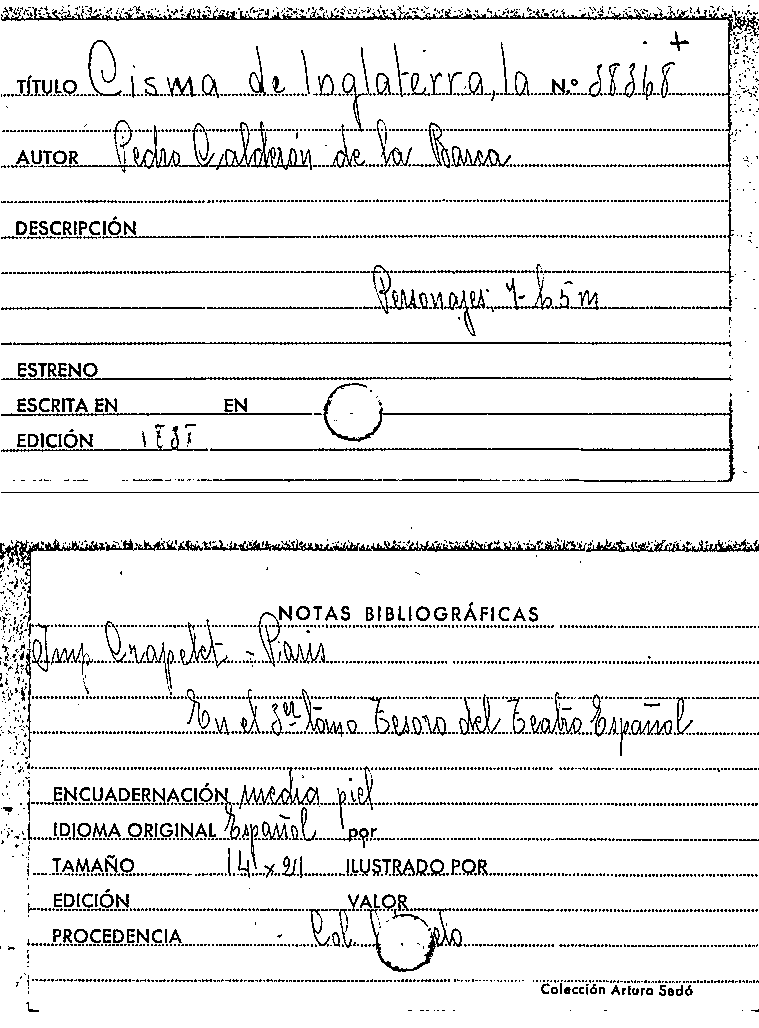 TÍTULO Cisma de Inglaterra, la N.º 38368
AUTOR Pedro Calderón de la Barca
DESCRIPCIÓN
Personajes: 7-h 5 m
ESTRENO
ESCRITA EN EN
EDICIÓN
NOTAS BIBLIOGRÁFICAS
Imp Crapelet - Paris
En el 3er tomo Tesoro del Teatro Español
ENCUADERNACIÓN media piel
IDIOMA ORIGINAL Español por
TAMAÑO 14 x 21 ILUSTRADO POR
EDICIÓN VALOR
PROCEDENCIA Col.
Colección Arturo Sedó